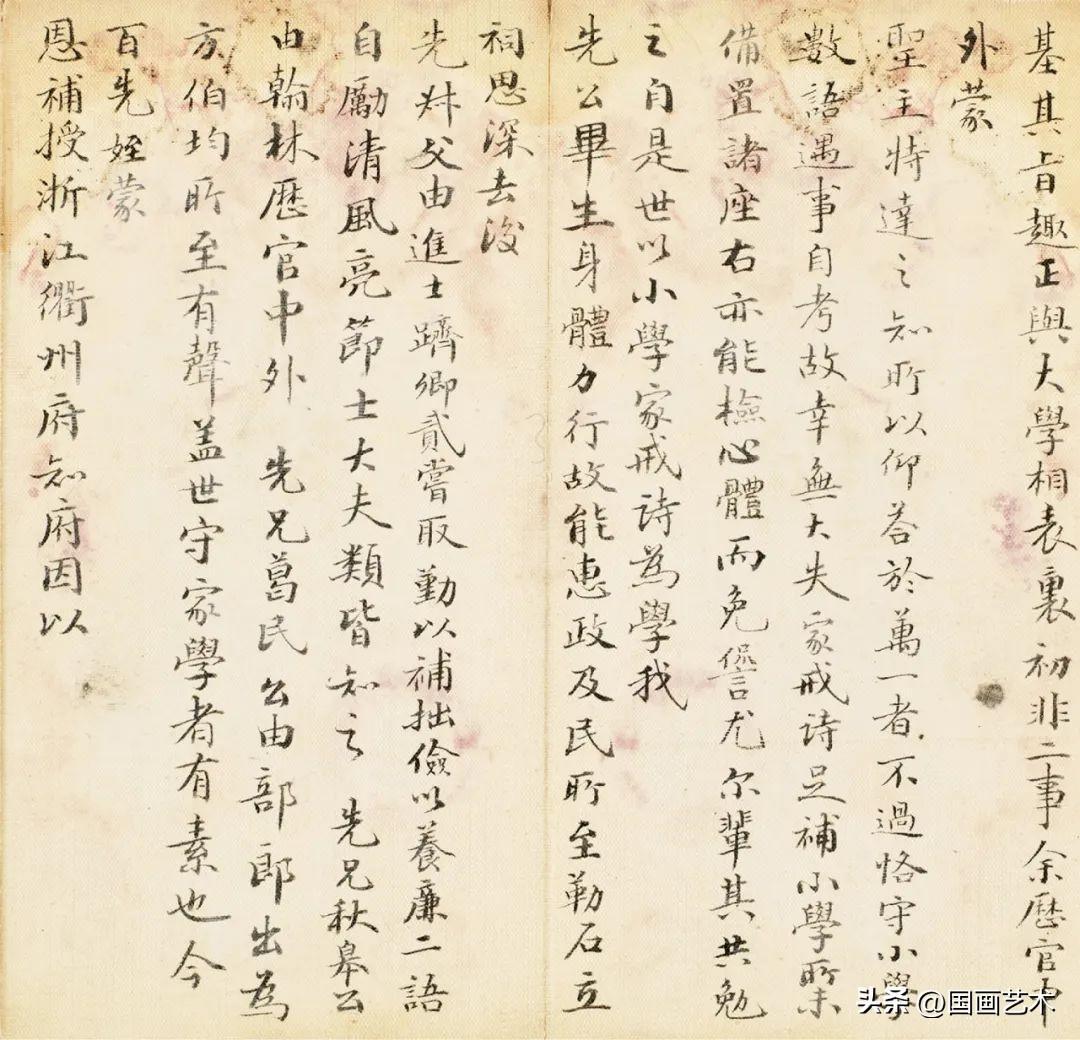 基其旨趣正與大學相表裏初非二事余歷官中
外蒙
聖主特達之知所以仰答於萬一者不過恪守小學
數語遇事自考故幸無大失家戒詩足補小學所未
備置諸座右亦能檢心體而免諐尤尔輩其共勉
之自是世以小學家戒詩為學我
先公畢生身體力行故能惠政及民所至勒石立
祠思深去後
先叔父由進士躋卿貳嘗取勤以補拙儉以養廉二語
自勵清風亮節士大夫類皆知之 先兄秋皋公
由翰林歷官中外 先兄葛民公由部郎出為
方伯均所至有聲盖世守家學者有素也今
百先姪蒙
恩補授浙江衢州府知府因以
头条 @国画艺术